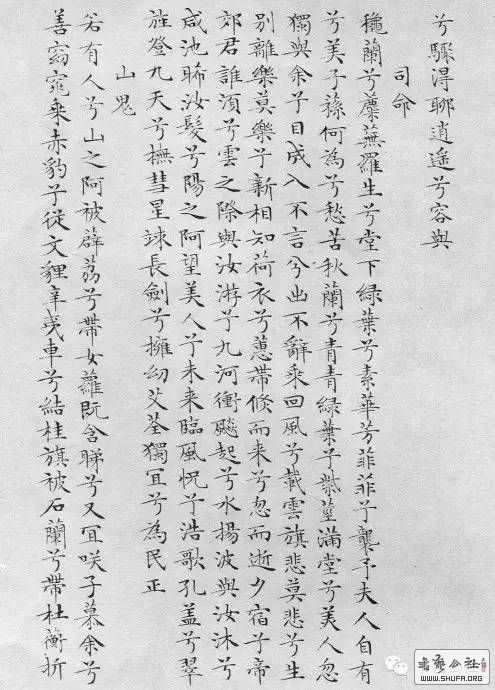 兮驟得聊逍遙兮容與
司命
穐蘭兮麋蕪羅生兮堂下綠葉兮素華芳菲菲兮襲予夫人自有
兮美子蓀何為兮愁苦秋蘭兮青青綠葉兮紫莖滿堂兮美人忽
獨與余兮目成入不言兮出不辭乘回風兮載雲旗悲莫悲兮生
別離樂莫樂兮新相知荷衣兮蕙帶倏而来兮忽而逝夕宿兮帝
郊君誰湏兮雲之際與汝游兮九河衝飈起兮水揚波與汝沐兮
咸池晞汝髮兮陽之阿望美人兮未来臨風怳兮浩歌孔盖兮翠
旌登九天兮撫彗星竦長劍兮擁幼艾荃獨冝兮為民正
山鬼
若有人兮山之阿被薜荔兮帶女蘿既含睇兮又冝咲子慕余兮
善窈窕乘赤豹兮從文貍辛夷車兮結桂旗被石蘭兮帶杜衡折
書藝公社
WWW.SHUFA.ORG